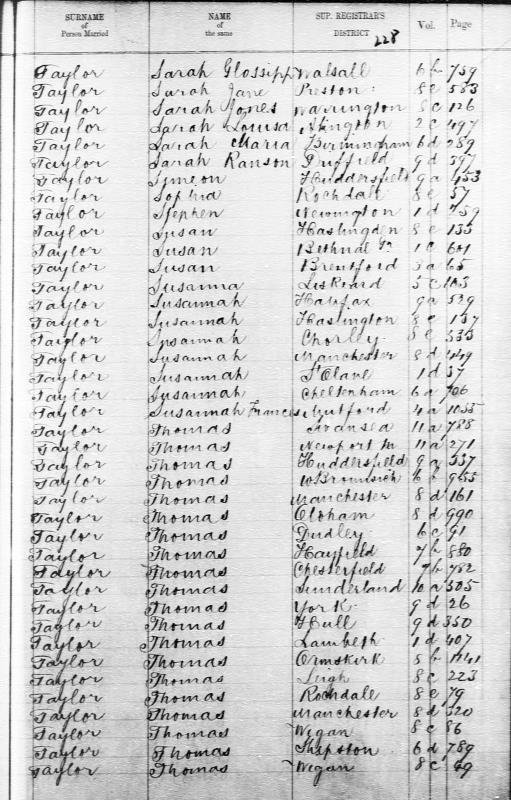 SURNAME of Person Married NAME of the same SUP. REGISTRAR'S DISTRICT Vol. Page
228
Taylor Sarah Glossipp Walsall 6 b 759
Taylor Sarah Jane Preston 8 e 583
Taylor Sarah Jones Warrington 8 c 126
Taylor Sarah Louisa Abingdon 2 c 497
Taylor Sarah Maria Birmingham 6 d 289
Taylor Sarah Ranson Driffield 9 d 397
Taylor Simeon Huddersfield 9 a 453
Taylor Sophia Rochdale 8 e 57
Taylor Stephen Newington 1 d 459
Taylor Susan Haslingden 8 e 135
Taylor Susan Bethnal Gn 1 c 601
Taylor Susan Brentford 3 a 65
Taylor Susanna Liskeard 5 c 103
Taylor Susannah Halifax 9 a 529
Taylor Susannah Haslington 8 e 137
Taylor Susannah Chorley 8 e 535
Taylor Susannah Manchester 8 d 449
Taylor Susannah St Olave 1 d 37
Taylor Susannah Cheltenham 6 a 706
Taylor Susannah Frances Mutford 4 a 1055
Taylor Thomas Swansea 11 a 788
Taylor Thomas Newport M 11 a 271
Taylor Thomas Huddersfield 9 a 337
Taylor Thomas W Bromwich 6 b 955
Taylor Thomas Manchester 8 d 161
Taylor Thomas Oldham 8 d 990
Taylor Thomas Dudley 6 c 91
Taylor Thomas Hayfield 7 b 880
Taylor Thomas Chesterfield 7 b 782
Taylor Thomas Sunderland 10 a 505
Taylor Thomas York 9 d 26
Taylor Thomas Hull 9 d 350
Taylor Thomas Lambeth 1 d 407
Taylor Thomas Ormskirk 8 b
Taylor Thomas Leigh 8 c 223
Taylor Thomas Rochdale 8 e 79
Taylor Thomas Manchester 8 d 320
Taylor Thomas Wigan 8 c 86
Taylor Thomas Shipston 6 d 789
Taylor Thomas Wigan 8 c 49